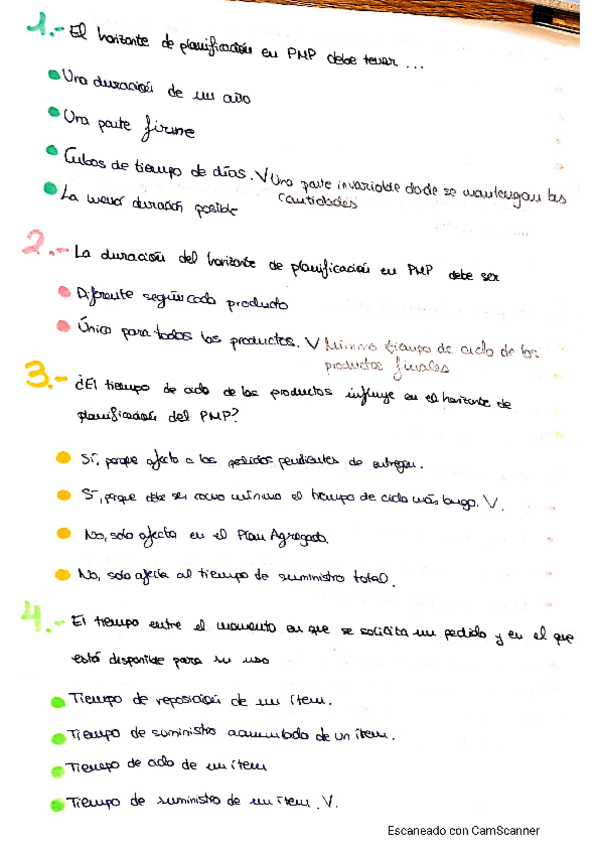 1.- El horizonte de planificación en PMP debe tener ...
Una duración de un año
Una parte firme
Cubos de tiempo de días. V Una parte invariable donde se mantengan las
cantidades
La menor duración posible
2.- La duración del horizonte de planificación en PMP debe ser
Diferente según cada producto
Único para todos los productos. V Mínimo tiempo de ciclo de los
productos finales
3.- ¿El tiempo de ciclo de los productos influye en el horizonte de
planificación del PMP?
Sí, porque afecta a los pedidos pendientes de entregar.
Sí, porque debe ser como mínimo el tiempo de ciclo más largo. V.
No, solo afecta en el Plan Agregado.
No, solo afecta al tiempo de suministro total.
4.- El tiempo entre el momento en que se solicita un pedido y en el que
está disponible para su uso
Tiempo de reposición de un ítem.
Tiempo de suministro acumulado de un ítem.
Tiempo de ciclo de un ítem
Tiempo de suministro de un ítem. V.
Escaneado con CamScanner